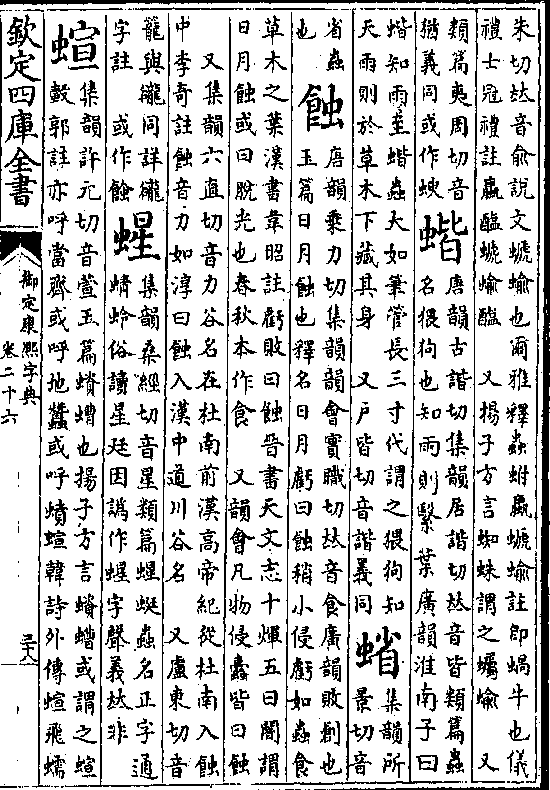 朱切𠀤音俞說文螔蝓也爾雅釋蟲蚹蠃螔蝓註即蝸牛也儀
禮士冠禮註蠃醢螔蝓醢 又揚子方言蜘蛛謂之蠾蝓 又
類篇夷周切音
猶義同或作蝚
蝔
唐韻古諧切集韻居諧切𠀤音皆類篇蟲
名猥狗也知雨則繫葉廣韻淮南子曰
蝔知雨至蝔蟲大如筆管長三寸代謂之猥狗知
天雨則於草木下藏其身 又戶皆切音諧義同
䗂
集韻所
景切音
省蟲
也
蝕
唐韻乗力切集韻韻會實職切𠀤音食廣韻敗創也
玉篇日月蝕也釋名日月虧曰蝕稍小侵虧如蟲食
草木之葉漢書韋昭註虧敗曰蝕晉書天文志十煇五曰闇謂
日月蝕或曰脫光也春秋本作食 又韻會凡物侵蠹皆曰蝕
又集韻六直切音力谷名在杜南前漢高帝紀從杜南入蝕
中李奇註蝕音力如淳曰蝕入漢中道川谷名 又盧東切音
龍與同詳
字註 或作蝕
䗌
集韻桑經切音星類篇䗌蜓蟲名正字通
蜻蛉俗讀星廷因譌作䗌字聲義𠀤非
蝖
集韻許元切音萱玉篇蠀螬也揚子方言蠀螬或謂之蝖
㲉郭註亦呼當齊或呼地蠶或呼蟦蝖韓詩外傳蝖飛蠕
欽定四庫全書
御定康熙字典
卷二十六
三十八